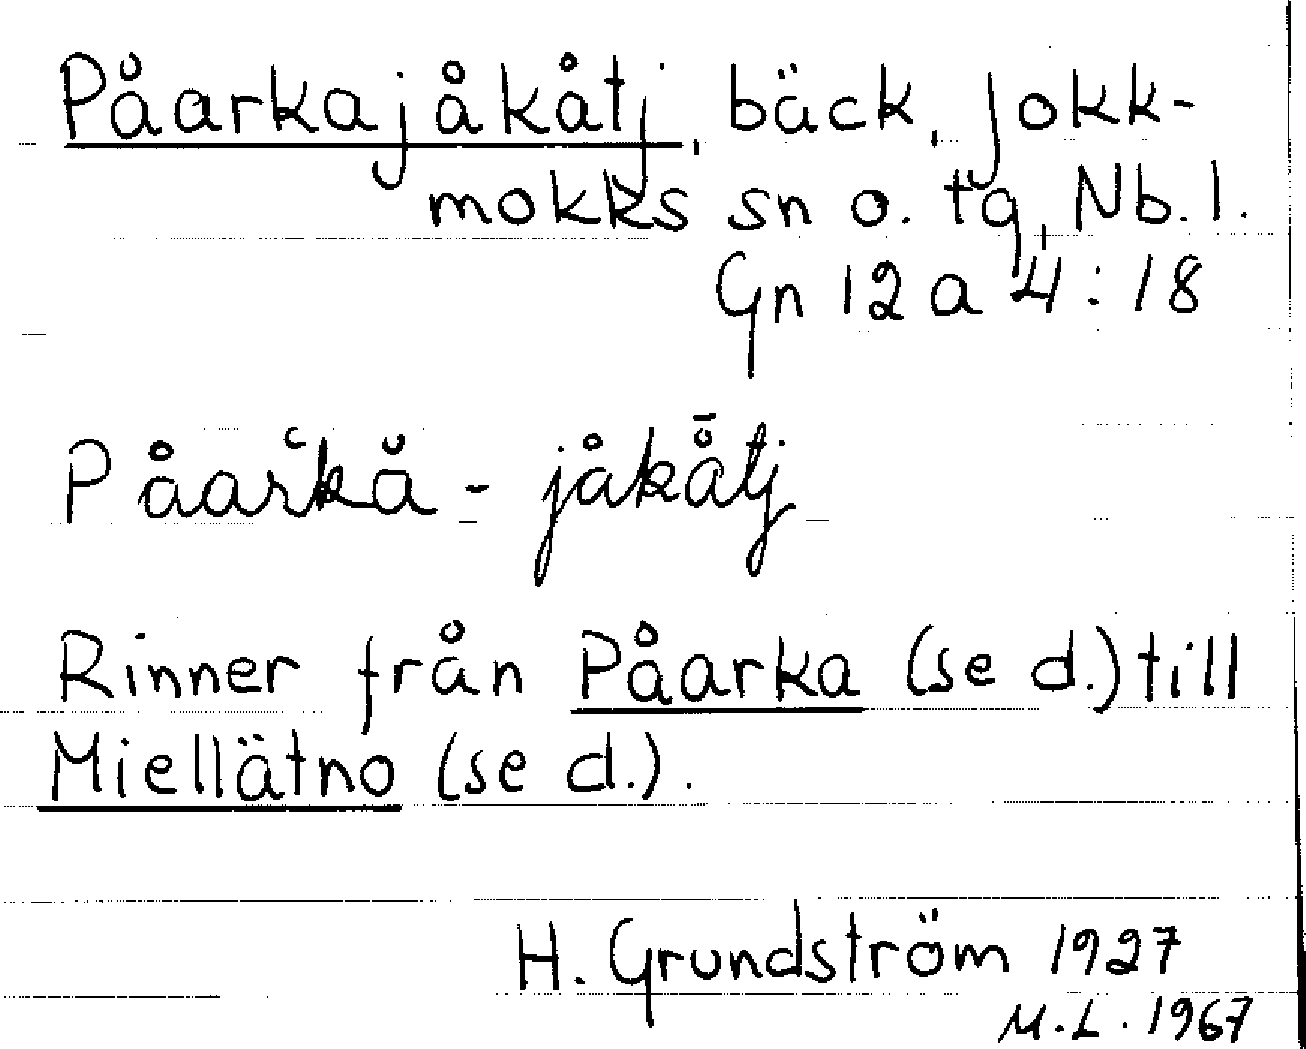 Påarkajåkåtj, bäck, Jokk-
mokks sn o. tg, Nb. l.
Gn 12 a 4 : 18
Påarʽkă - jåkå̄tj
Rinner från Påarka (se d.) till
Miellätno (se d.).
H. Grundström 1927
M. L. 1967